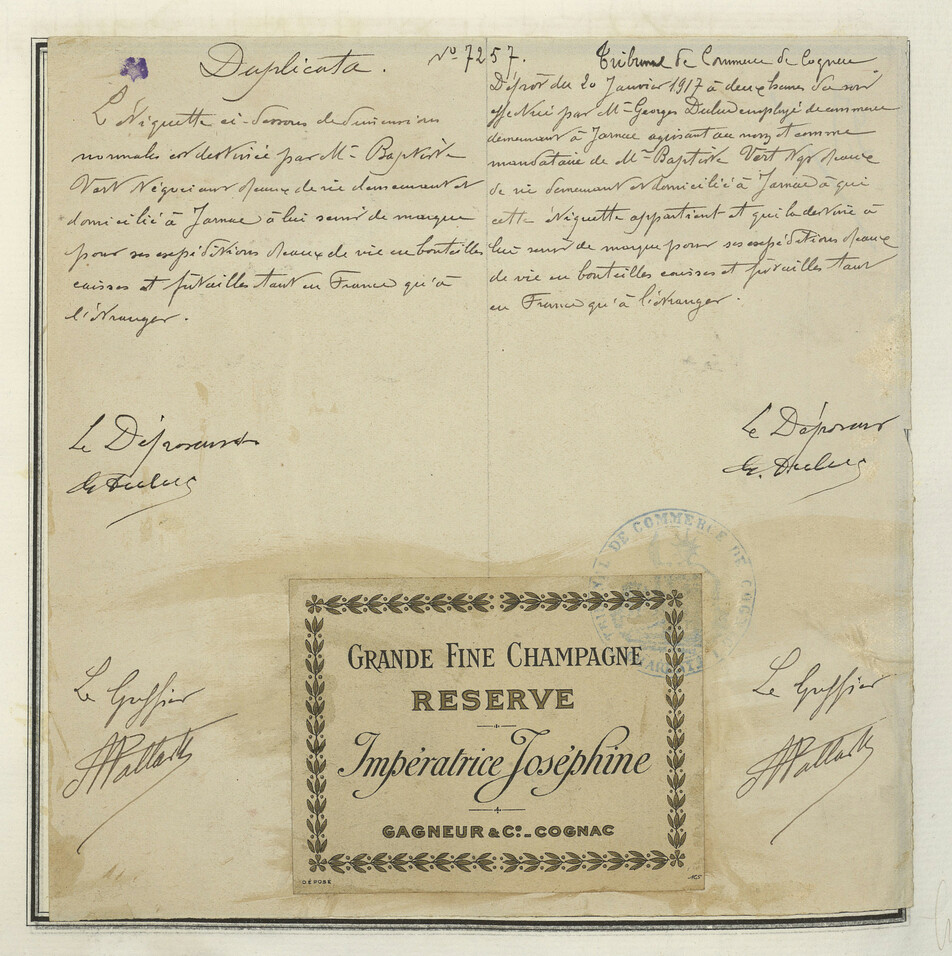 Duplicata.
L'étiquette ci-dessous de dimensions
normales est destinée par Mr Baptiste
Vert Négociant d'eaux de vie demeurant et
domicilié à Jarnac à lui servir de marque
pour ses expéditions d'eaux de vie en bouteilles
caisses et futailles tant en France qu'à
l'étranger.
Le Déposant
G Duluc
Le Greffier
No 7257.
Tribunal de Commerce de Cognac
Dépôt du 20 Janvier 1917 à deux heures du soir
effectué par Mr Georges Duluc employé de commerce
demeurant à Jarnac agissant au nom et comme
mandataire de Mr Baptiste Vert Ngt d'eaux
de vie demeurant et domicilié à Jarnac à qui
cette étiquette appartient et qui la destine à
lui servir de marque pour ses expéditions d'eaux
de vie en bouteilles caisses et futailles tant
en France qu'à l'étranger.
Le Déposant
G. Duluc
Le Greffier
DE COMMERCE DE COG
GRANDE FINE CHAMPAGNE
RESERVE
Impératrice Joséphine
GAGNEUR & Co_COGNAC
DÉPOSÉ